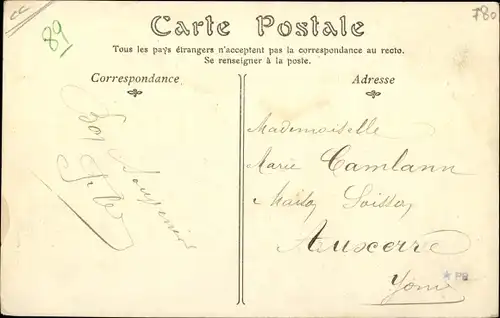 89
780
Carte Postale
Tous les pays étrangers n'acceptent pas la correspondance au recto.
Se renseigner à la poste.
Correspondance
Adresse
Bon Souvenir
Mademoiselle
Marie Camlann
Maison Soisson
Auxerre
Yonne
PB